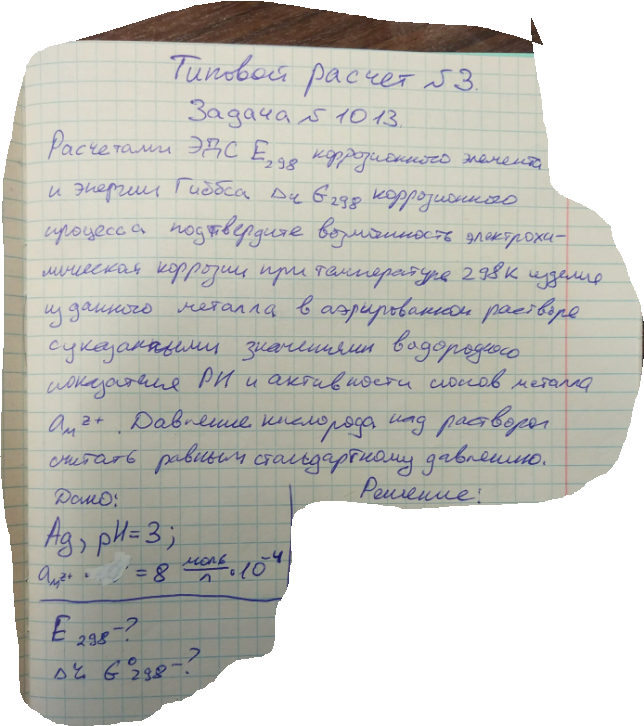 Типовой расчет №3.
Задача №1013.
Расчетами ЭДС E₂₉₈ коррозионного элемента
и энергии Гиббса Δч G₂₉₈ коррозионного
процесса подтвердите возможность электрохи-
мическая коррозии при температуре 298К изделие
из данного металла в аэрированном растворе
с указанными значениями водородного
показателя PH и активности ионов металла
aₘᶻ⁺. Давление кислорода над раствором
считать равным стандартному давлению.
Дано: Решение:
Ag, pH=3;
aₘᶻ⁺ = 8 моль/л · 10⁻⁴
E₂₉₈-?
Δч G⁰₂₉₈-?